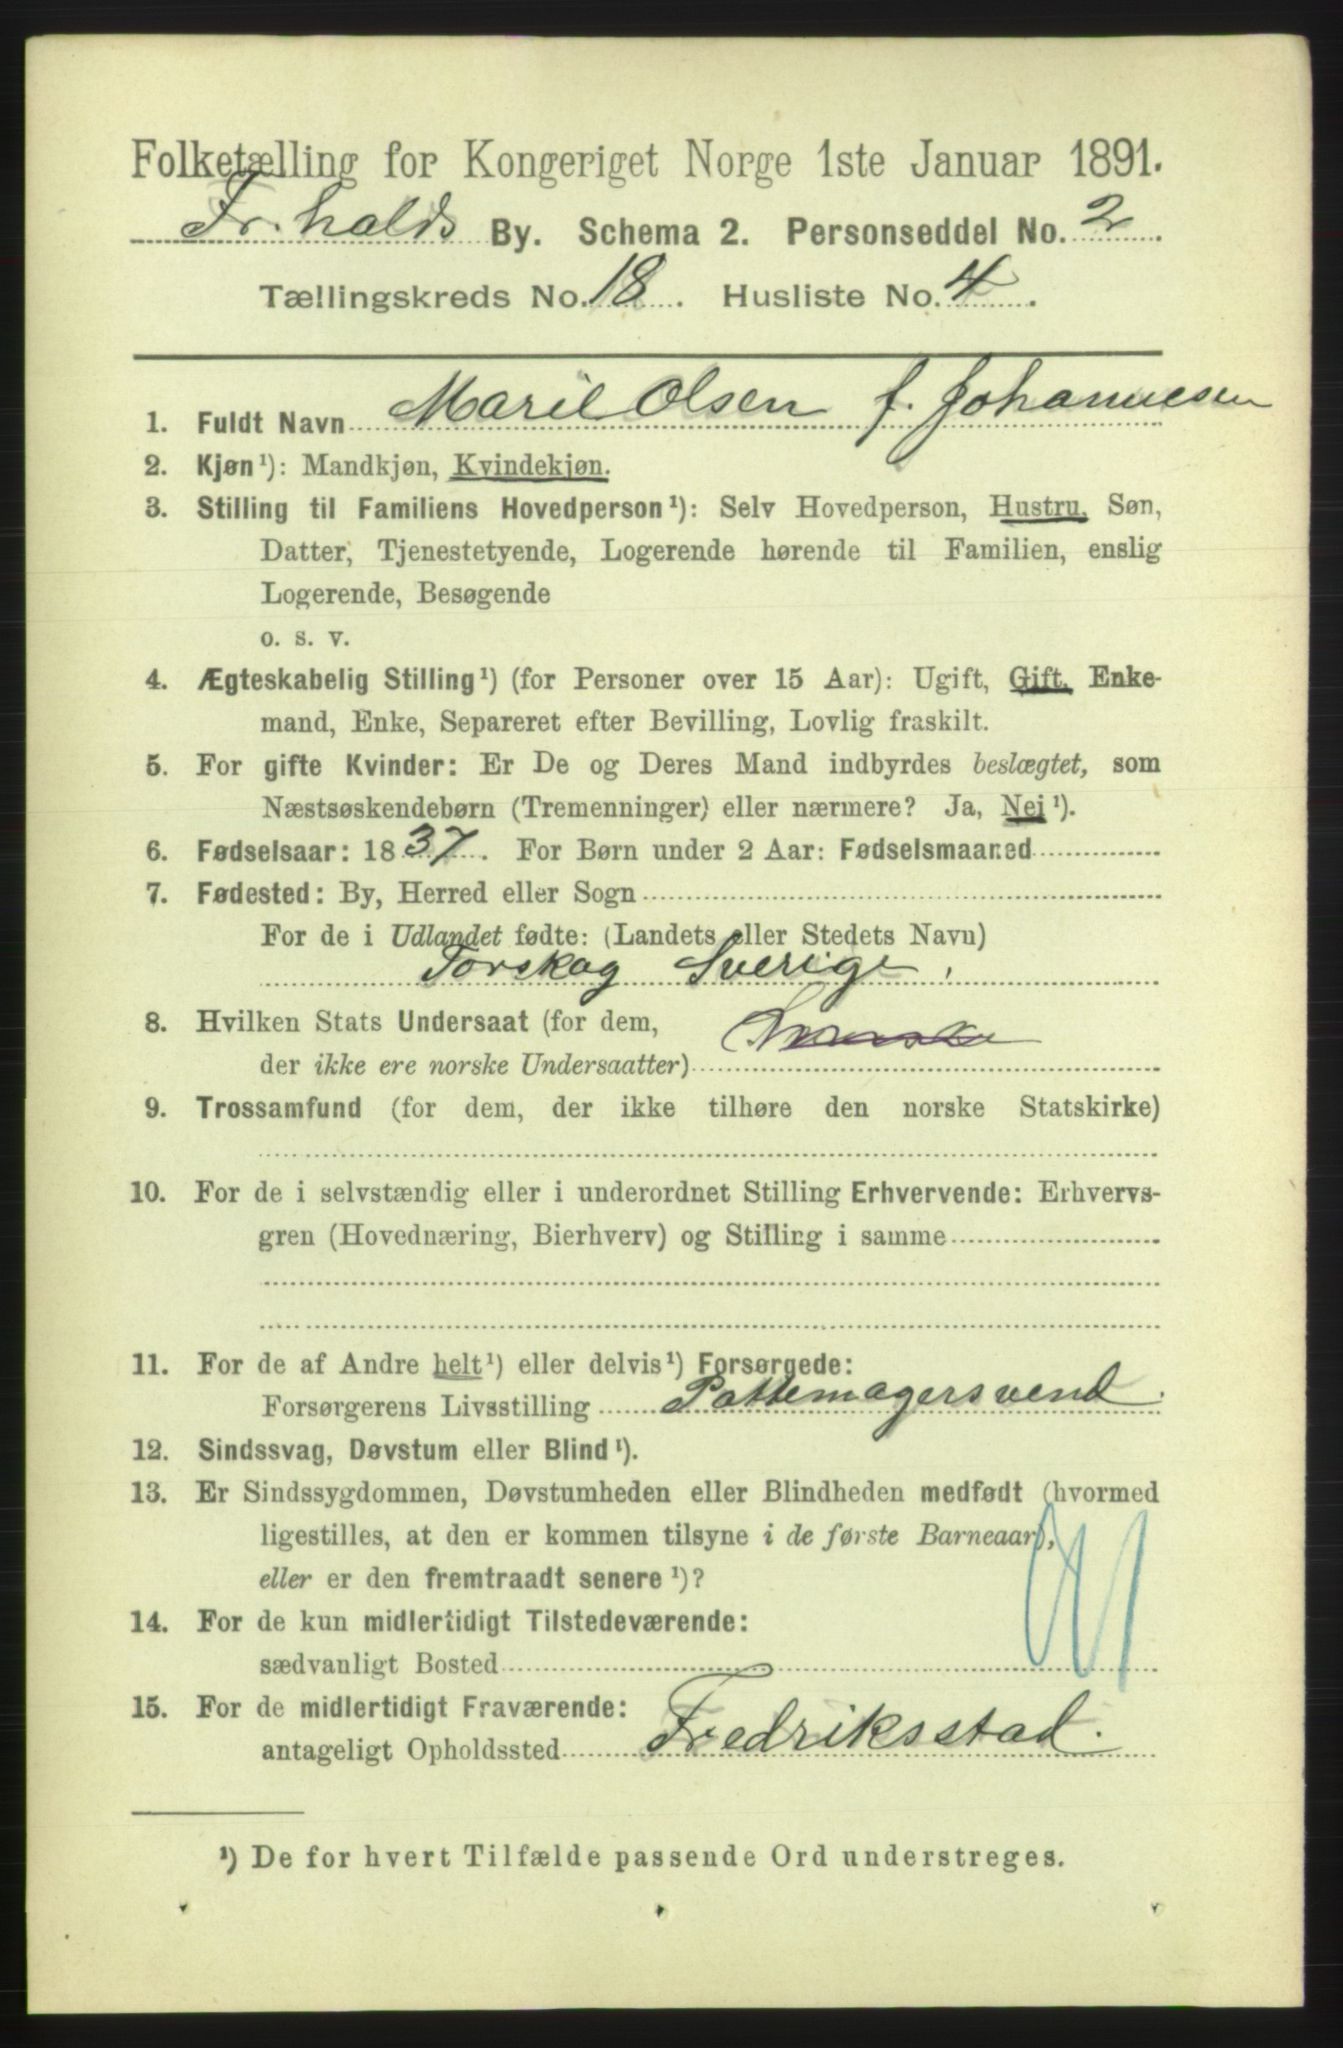 Folketælling for Kongeriget Norge 1ste Januar 1891.
Fr.halds By. Schema 2. Personseddel No. 2
Tællingskreds No. 18. Husliste No. 4.
1. Fuldt Navn Marie Olsen f. Johannesen
2. Kjøn¹): Mandkjøn, Kvindekjøn.
3. Stilling til Familiens Hovedperson¹): Selv Hovedperson, Hustru, Søn,
Datter, Tjenestetyende, Logerende hørende til Familien, enslig
Logerende, Besøgende
o. s. v.
4. Ægteskabelig Stilling¹) (for Personer over 15 Aar): Ugift, Gift, Enke-
mand, Enke, Separeret efter Bevilling, Lovlig fraskilt.
5. For gifte Kvinder: Er De og Deres Mand indbyrdes beslægtet, som
Næstsøskendebørn (Tremenninger) eller nærmere? Ja, Nej¹).
6. Fødselsaar: 1837. For Børn under 2 Aar: Fødselsmaaned
7. Fødested: By, Herred eller Sogn
For de i Udlandet fødte: (Landets eller Stedets Navn)
Torskog Sverige.
8. Hvilken Stats Undersaat (for dem,
der ikke ere norske Undersaatter)
9. Trossamfund (for dem, der ikke tilhøre den norske Statskirke)
10. For de i selvstændig eller i underordnet Stilling Erhvervende: Erhvervs-
gren (Hovednæring, Bierhverv) og Stilling i samme
11. For de af Andre helt¹) eller delvis¹) Forsørgede:
Forsørgerens Livsstilling Pottemagersvend.
12. Sindssvag, Døvstum eller Blind¹).
13. Er Sindssygdommen, Døvstumheden eller Blindheden medfødt (hvormed
ligestilles, at den er kommen tilsyne i de første Barneaar),
eller er den fremtraadt senere¹)?
14. For de kun midlertidigt Tilstedeværende:
sædvanligt Bosted
15. For de midlertidigt Fraværende:
antageligt Opholdssted Fredriksstad.
¹) De for hvert Tilfælde passende Ord understreges.